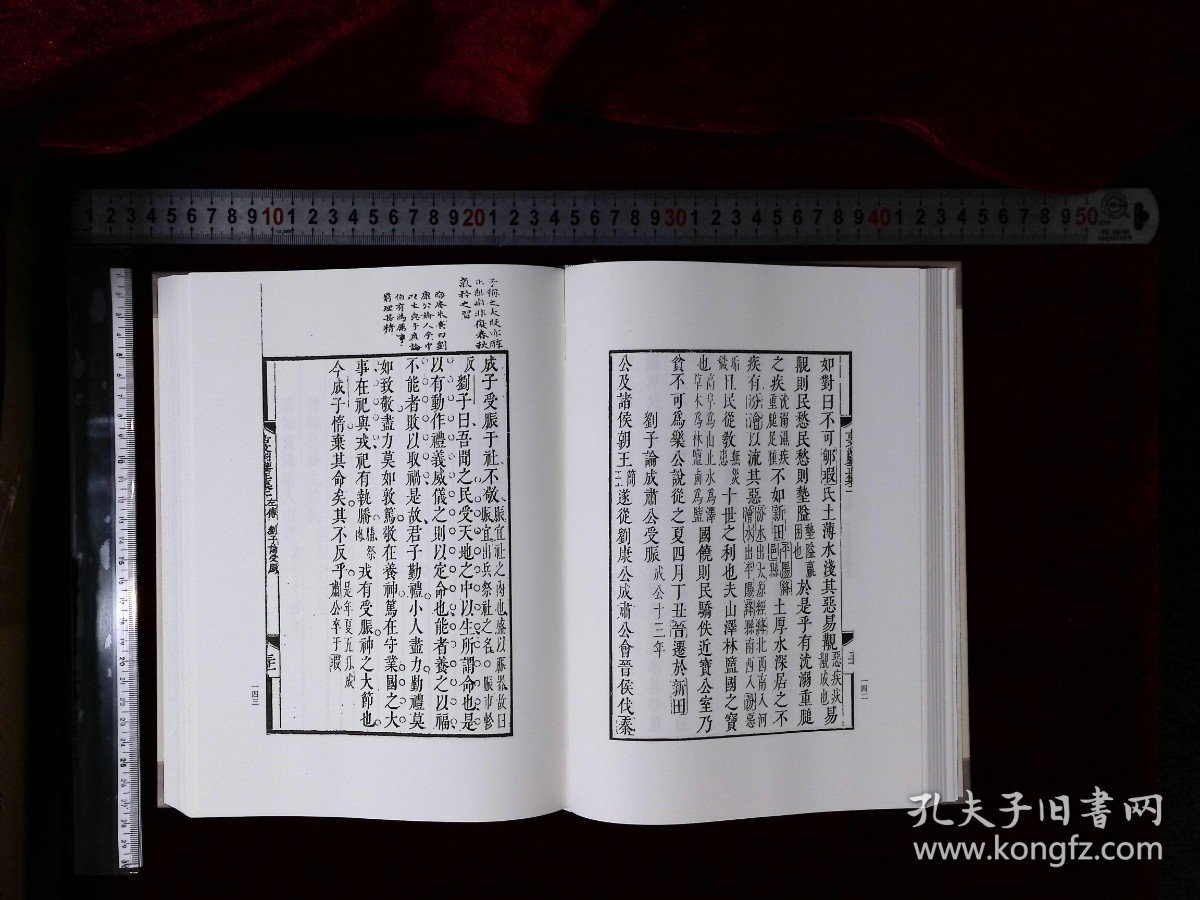 如對曰不可郇瑕氏土薄水淺其惡易覯惡疾疢覯成也易
覯則民愁民愁則墊隘墊隘羸困也於是乎有沈溺重膇
之疾沈溺濕疾重膇足腫不如新田平陽絳邑縣土厚水深居之不
疾有汾澮以流其惡汾水出太原經絳北西南入河澮水出平陽絳縣南西入汾惡
垢穢且民從敎無災患十世之利也夫山澤林盬國之寶
也高平爲山止水爲澤草木爲林鹽鹵爲盬國饒則民驕佚近寶公室乃
貧不可爲樂公說從之夏四月丁丑晉遷於新田
劉子論成肅公受脤成公十三年
公及諸侯朝王簡王遂從劉康公成肅公會晉侯伐秦
一四二
子
氣矜之習
康公
成子受脤于社不敬脤宜社之肉也盛以脤器故曰
脤宜出兵祭社之名劉子曰吾聞之民受天地之中以生所謂命也是
以有動作禮義威儀之則以定命也能者養之以福
不能者敗以取禍是故君子勤禮小人盡力勤禮莫
如致敬盡力莫如敦篤敬在養神篤在守業國之大
事在祀與戎祀有執膰膰祭肉戎有受脤神之大節也
今成子惰棄其命矣其不反乎肅公卒于瑕
左傳 劉子論受脤
一四三
1 2 3 4 5 6 7 8 9 10 1 2 3 4 5 6 7 8 9 20 1 2 3 4 5 6 7 8 9 30 1 2 3 4 5 6 7 8 9 40 1 2 3 4 5 6 7 8 9 50
孔夫子旧书网
www.kongfz.com